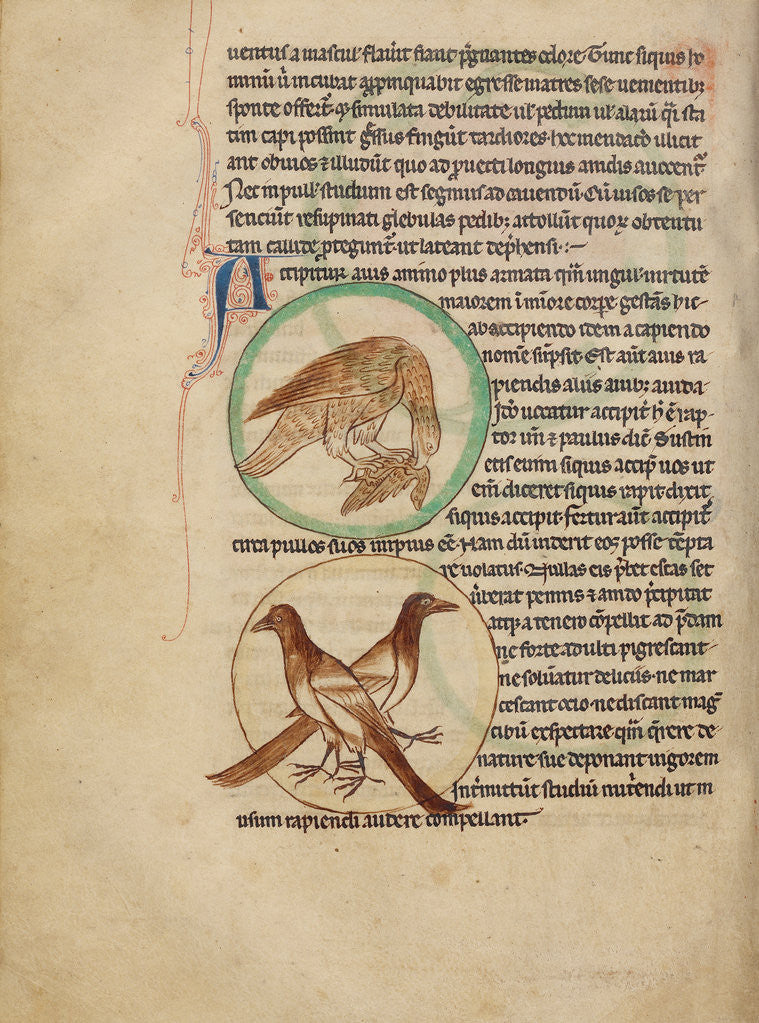 uentus a mascul' flau'it fiant p̄gnantes odore. Tunc siquis ho
minū ū incubat app̄inquabit egresse matres sese uenientib;
sponte offerūt. & simulata debilitate uel pedum uel alarū q̄i sta
tim capi possint g̃ssus fingūt tardiores. hoc mendacio illicit
ant obuios & illudūt quo ad prouecti longius a nidis auocent᷑
Nec in pull' studium est segnius ad cauendū. Cū uisos se per
senciūt resupinati glebulas pedib; attollūt quoꝝ obtentu
tam callide p̱tegunt᷑. ut lateant dep̃hensi :-
Accipitur auis animo plus armata q̄m ungul' uirtutē
maiorem ī minore corpe gestās hic
ab accipiendo idem a capiendo
nom̄e sūpsit. Est aūt auis ra
piendis aliis auib; auida.
Ido uocatur accipit̾ h̾ ē rap
tor un̄ & paulus dic̄. Sustin
etis enim siquis accip̾ uos ut
em̄ diceret siquis rapit dixit.
siquis accipit. fertur aūt accipit̾
circa pullos suos impius eē. Nam dū uiderit eos posse tēpta
re uolatus. Nullas eis p̃bet escas set
ūberat pennis & a nido p̃cipitat
atq; a tenero cōpellit ad p̃dam
ne forte adulti pigrescant
ne soluātur deliciis. ne mar
cescant ocio. ne discant mag̾
cibū exspectare. q̄m q̄rere. de
nature sue deponant uigorem
Int̾mittūt studiū nut̾endi ut in
usum rapiendi audere compellant.